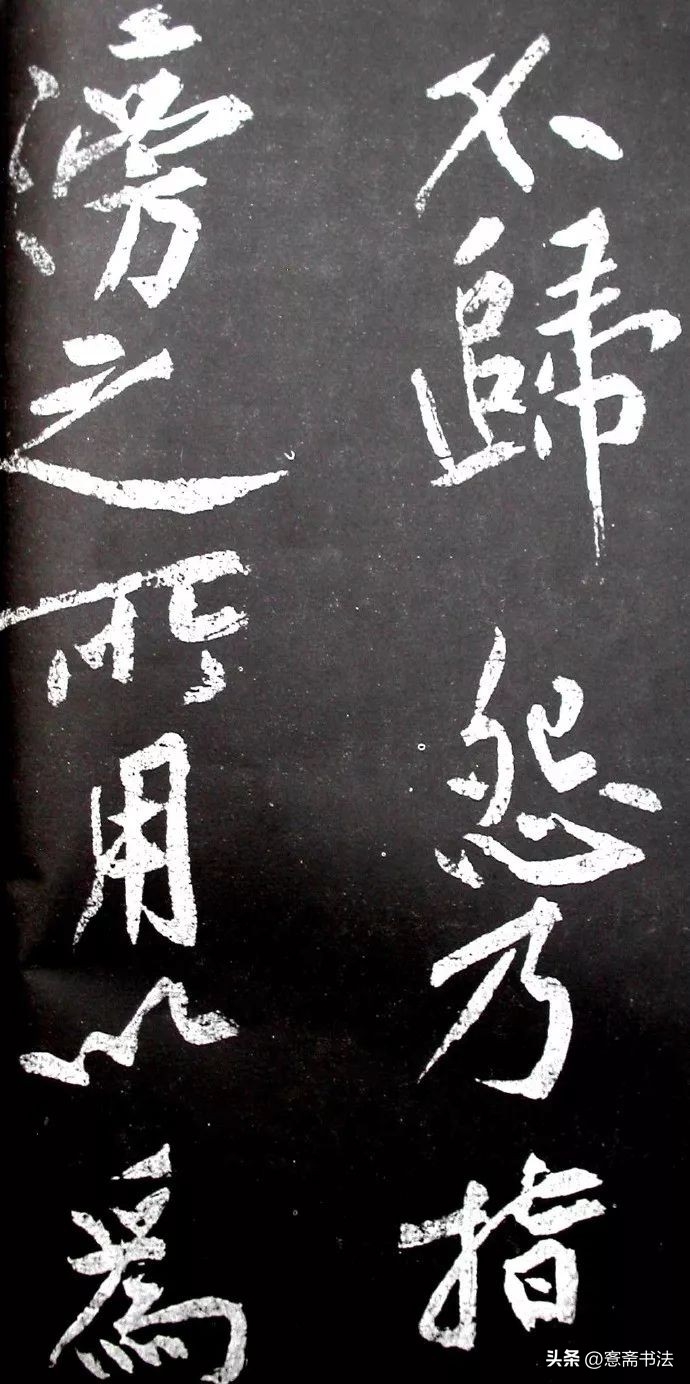 不歸怨乃指
滂之所用以爲
头条@窓斋书法